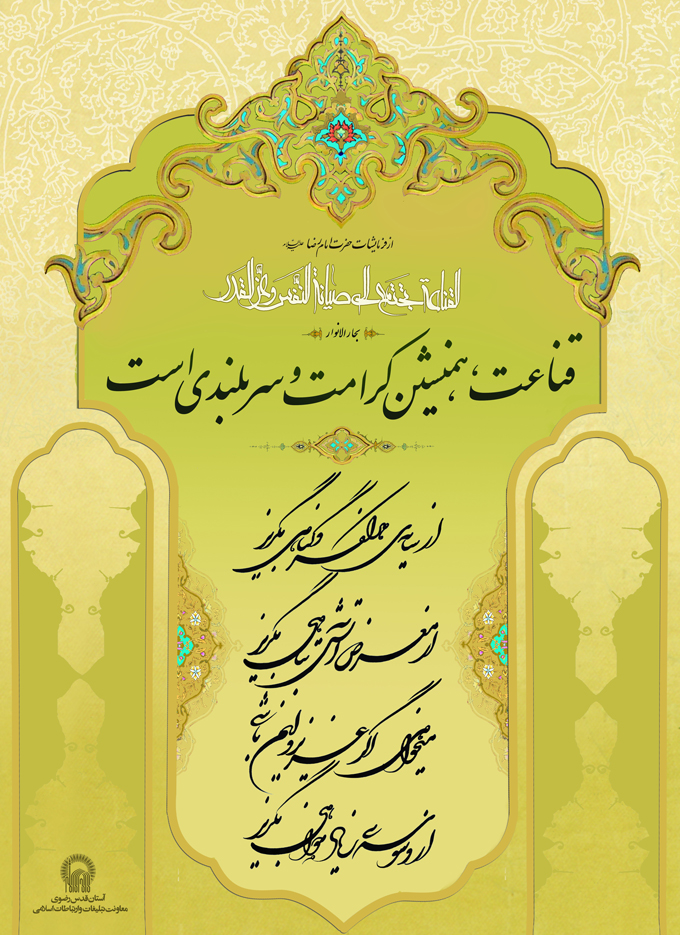 از فرمایشات حضرت امام رضا علیه السلام
القناعة تجتمع الی صیانة النفس و عز القدر
بحار الانوار
قناعت، همنشین کرامت و سربلندی است
از سایه‌ی گناهی بگریز
از معرض آتش تباهی بگریز
میخواهی اگر عزیز و ایمن باشی
از وسوسه زیاده خواهی بگریز
آستان قدس رضوی
معاونت تبلیغات و ارتباطات اسلامی